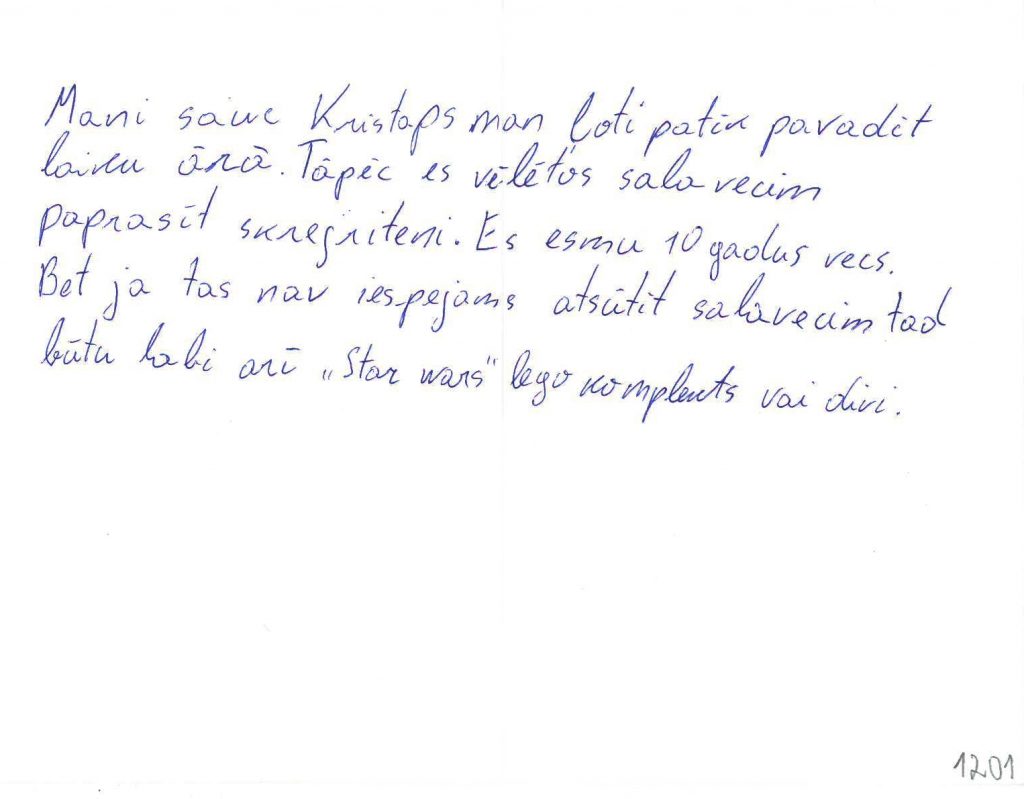 Mani sauc Kristaps man ļoti patīk pavadīt
laiku ārā. Tāpēc es vēlētos salavecim
paprasīt skrejriteni. Es esmu 10 gadus vecs.
Bet ja tas nav iespejams atsūtīt salavecim tad
būtu labi arī „Star wars" lego komplekts vai divi.
1201